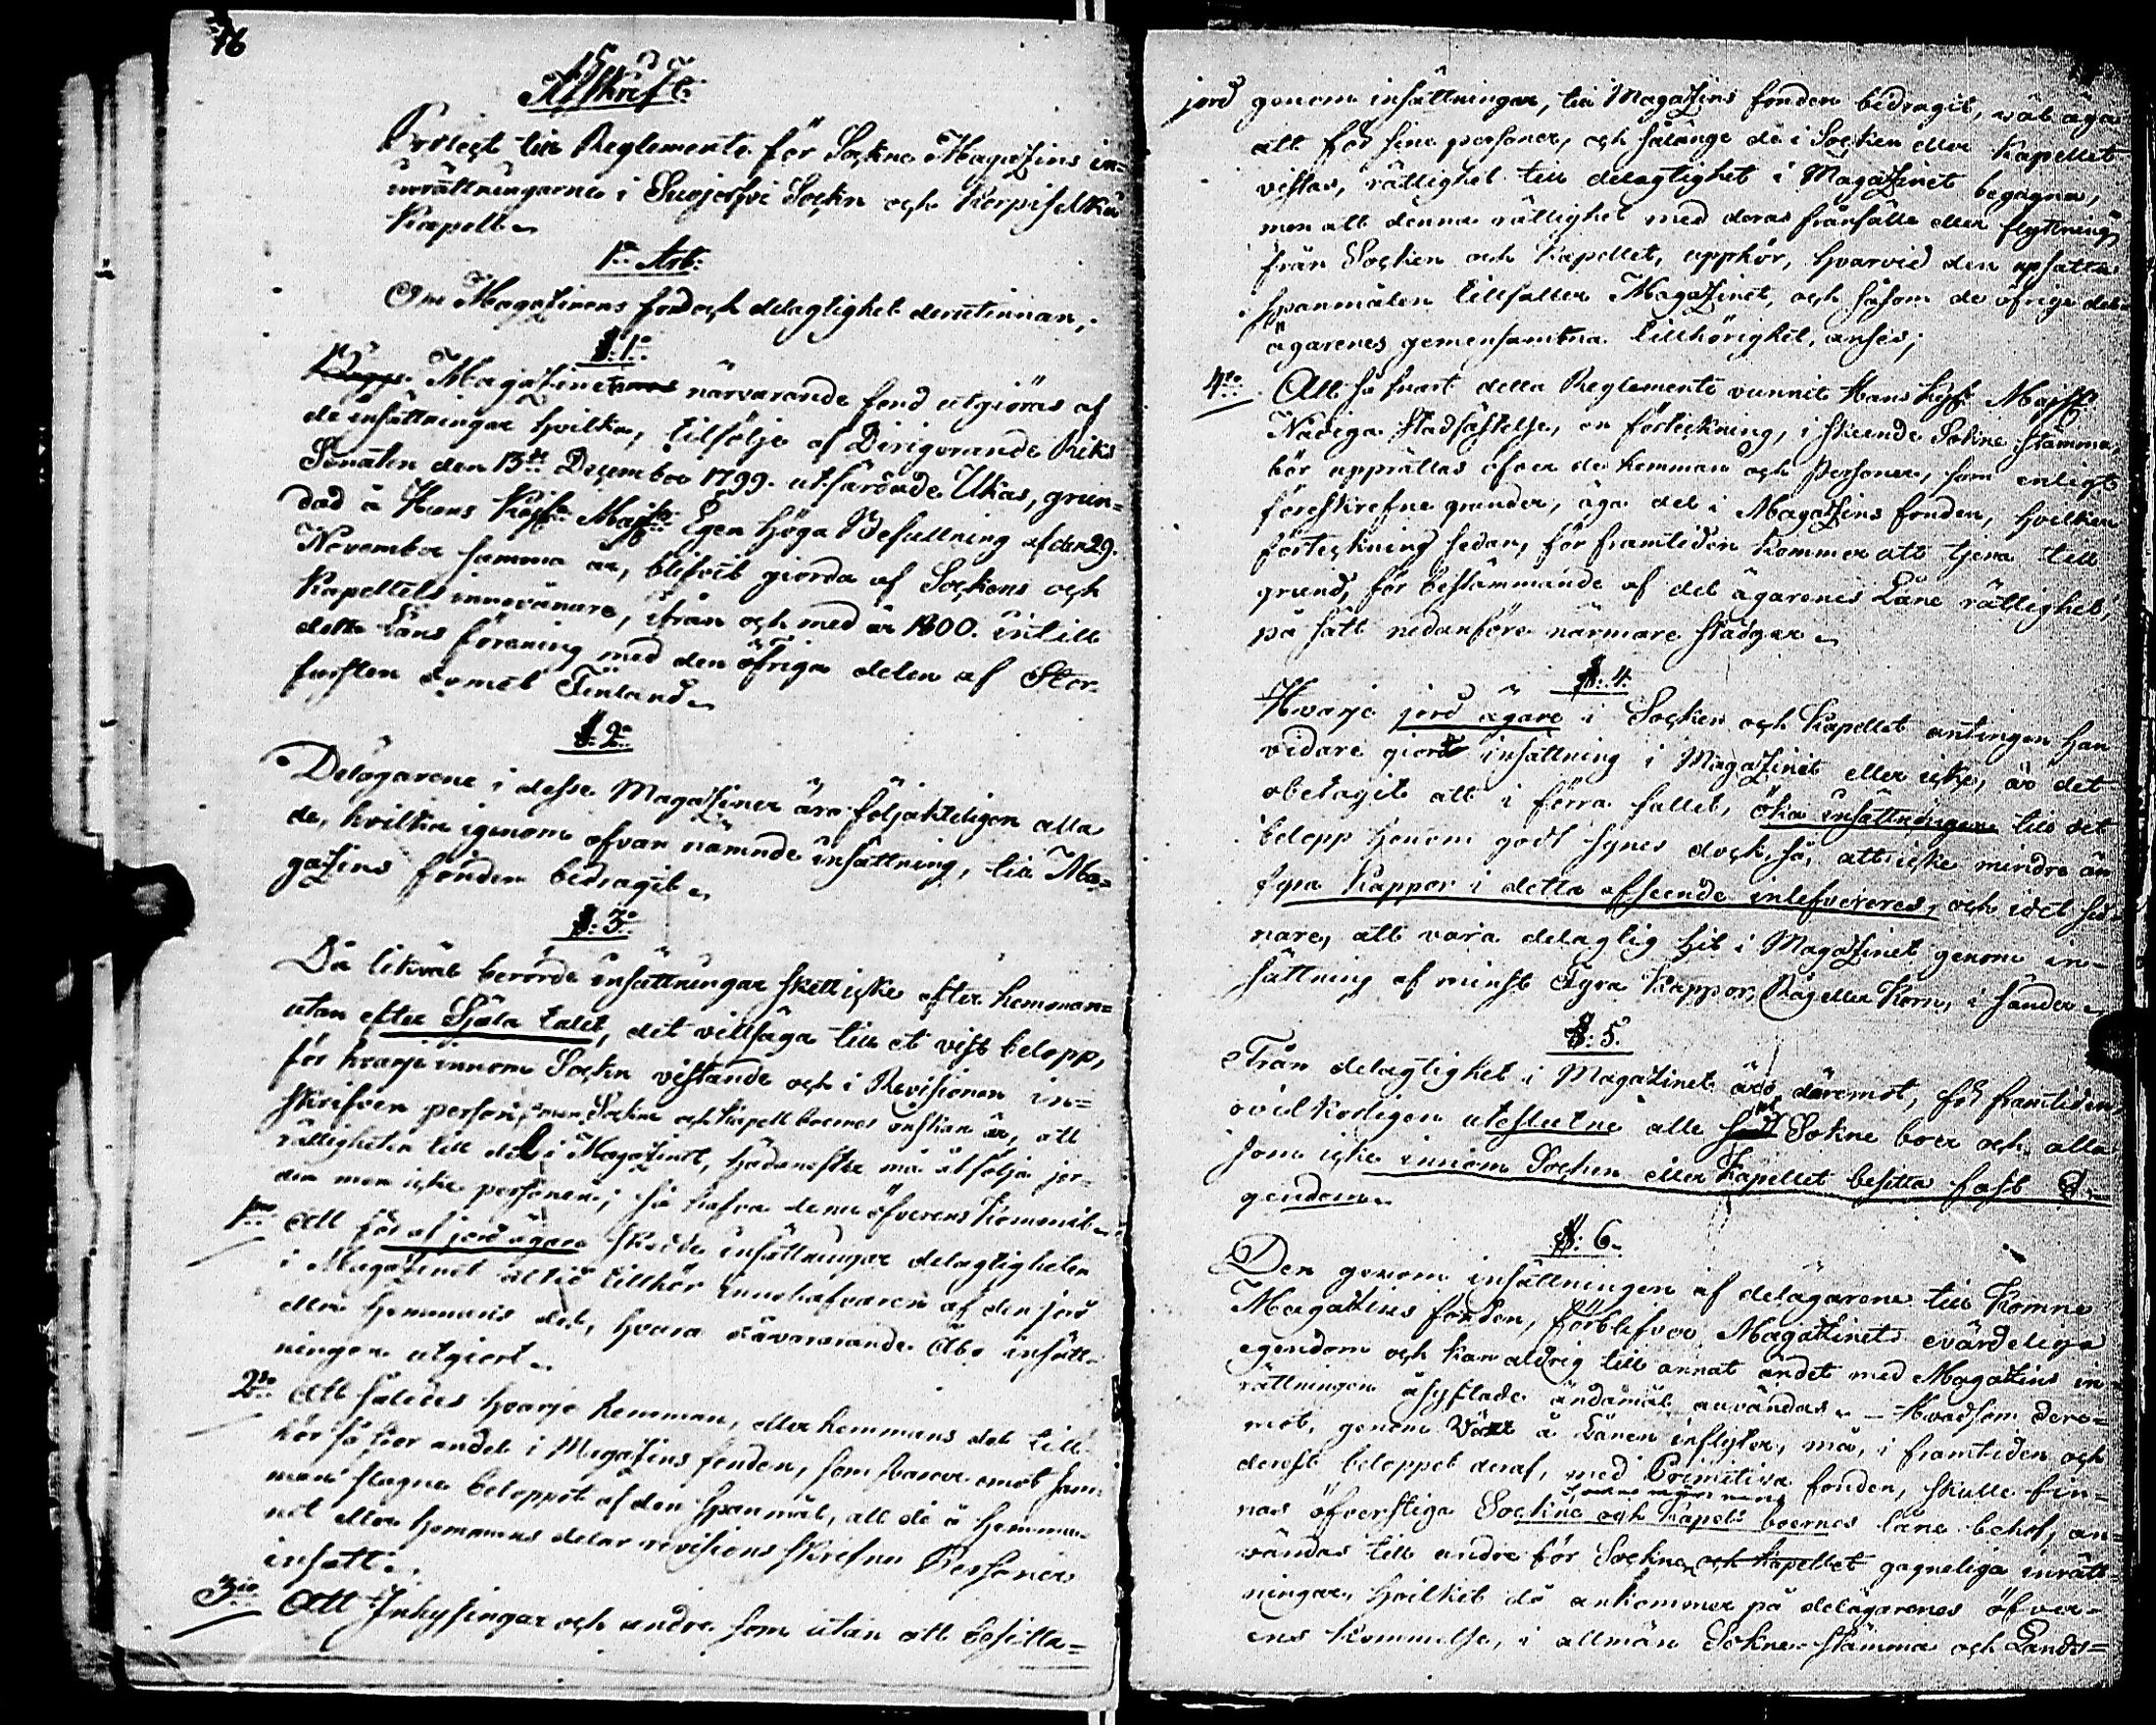 16
Afskrift.
Project till Reglemente för Sockne Magazins in=
inrättningarne i Suojerfvi Sockn och Korpiselkä
Kapell.
1sta Art:
Om Magazinens fond och delagtighet derutinnan,
§: 1mo
Magazinets närvarande fond utgiöres af
de insättningar hvilka, tilfölje af Dirigerande Riks
Senaten den 13de December 1799. utfärdade Ukas, grun=
dad å Hans Kejse. Majts Egen höga Befallning af den 29.
November samma år, blifvit giorda af Sockens och
Kapellets innevånare, ifrån och med år 1800. intill
dette Läns förening med den öfriga delen af Stor
fursten dömet Finland.
§: 2do
Delägarene i desse Magaziner äro följakteligen alla
de, hvilka igenom ofvan nämnde insättning, till Ma=
gazins fonden bedragit.
§: 3o
Då likväl berörde insättningar skett icke efter hemman=
utan efter Själa talet, det vill säga till et visst belopp,
för hvarje innom Sockn vistande och i Revisionen in=
skrifven person, men Sockne och Kapell boernes önskan är, att
rättigheten till del i Magazinet, hädanefter må åtfölja jor=
den men icke personen; så hafva denne öfverens kommit.
1mo Att för af jord ägare skedde insättningar delagtigheten
i Magazinet altid tillhör innehafvaren af den jord
eller Hemmans del, hvars dåvarande Åbo insätt=
ningen utgiort.
2do Att således hvarje hemman, eller hemmans del till=
hör så stor andel i Magazins fonden, som svarar emot sam=
man slagne beloppet af den Spanmål, all de å hemma=
net eller hemmans delar revisions skrefne Personer
insatt.
3tio Att Inhysingar och andre som utan att besitta=
jord genom insättningar, till Magazins fonden bidragit, väl äga
att för sine personer, och sålänge de i Socken eller Kapellet
vistas, rättighet till delagtighet i Magazinet begagna,
men att denna rättighet med deras frånfälle eller flyttning
från Socken och Kapellet, upphör, hvarvid den insatta
Spanmålen tillfaller Magazinet, och såsom de öfrige del=
ägarenes gemensamma tillhörighet, anses;
4to Att så snart detta Reglemente vunnit Hans Kejs. Majts
Nådiga Stadfästelse, en förteckning, i skeende Sokne stämma,
bör upprättas öfver de hemman och Personer, som enligt
föreskrefne grunder, äga del i Magazins fonden, hvilken
förteckning sedan, för framtiden kommer att tjena till
grund, för bestämmande af del ägarenes Låne rättighet,
på sätt nedanföre närmare stadgas.
§: 4.
Hvarje jord ägare i Socken och Kapellet antingen han
vidare giort insättning i Magazinet eller icke, är det
obetagit att i förra fallet, öka insättningen till det
belopp honom godt synes dock så, att icke mindre än
fyra Kappor i detta afseende inlefvereras, och i det sed=
nare, att vara delagtig hit i Magazinet genom in=
sättning af minst Fyra Kappor, Råg eller Korn, i sänder.
§: 5.
Från delagtighet i Magazinet äro däremot, för framtiden,
ovilkorligen uteslutne alle Sokne boer och alla
som icke innom Socken eller Kapellet besitta fast E=
gendom.
§: 6.
Den genom insättningen af delägarene till komne
Magazins fonden, förblifver Magazinets evärdeliga
egendom och kan aldrig till annat ändet med Magazins in=
rättningen åsyftade ändamål användas. – Hvad som dere=
mot, genom Växt å Lånen inflyter, må, i framtiden och
derest beloppet deraf, med Primitiva fonden, skulle fin=
nas öfverstiga Sockne och Kapell boernes låne behof, an=
vändas till andre för Sockne och Kapellet gagneliga inrätt=
ningar, hvilket då ankommer på delägarenes öfver=
ens kommelse, i allmän Sokne stämma och Lands=